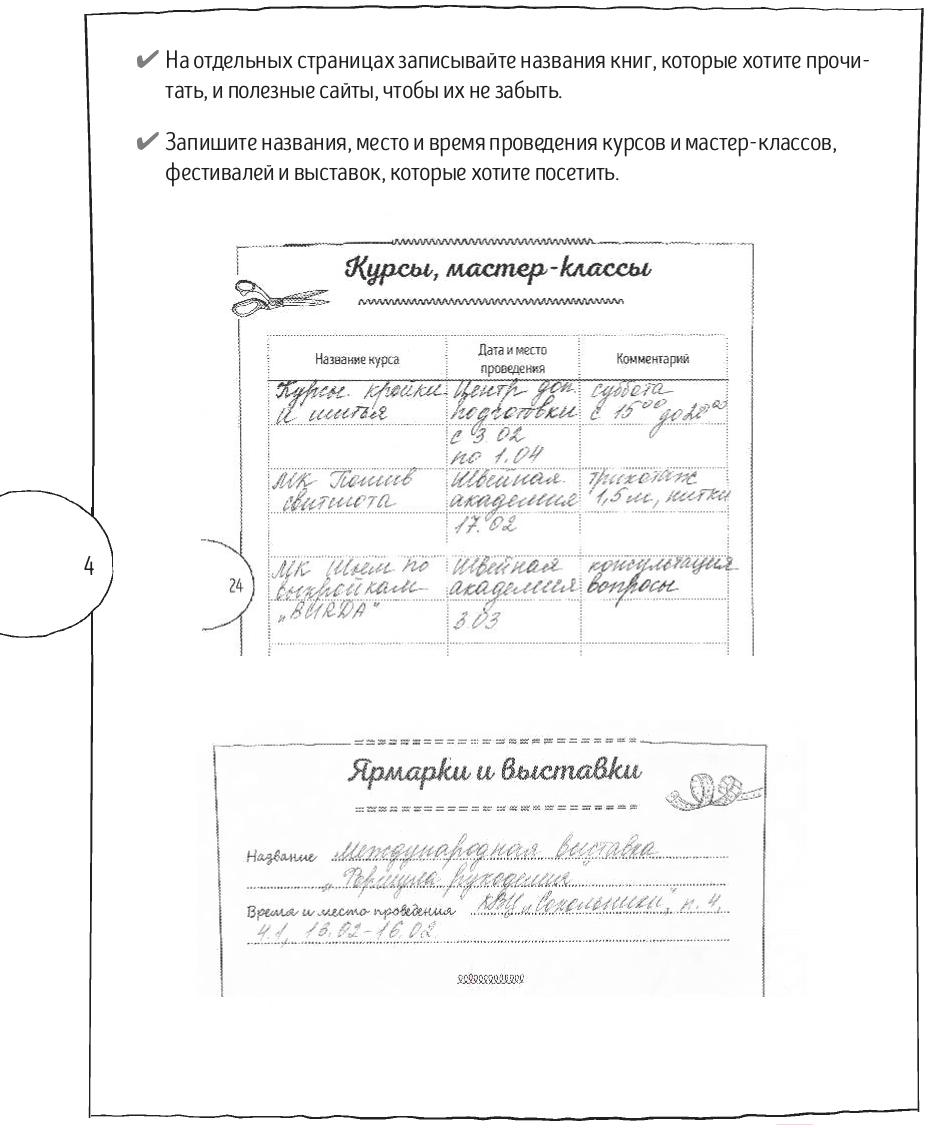 ✔ На отдельных страницах записывайте названия книг, которые хотите прочи-
тать, и полезные сайты, чтобы их не забыть.
✔ Запишите названия, место и время проведения курсов и мастер-классов,
фестивалей и выставок, которые хотите посетить.
Курсы, мастер-классы
Название курса
Дата и место
проведения
Комментарий
Курсы кройки
и шитья
Центр доп.
подготовки
с 3.02
по 1.04
суббота
с 15⁰⁰ до
МК Пошив
свитшота
Швейная
академия
17.02
трикотаж
1,5 м, нитки
4
24
МК Шьем по
выкройкам
„BURDA"
Швейная
академия
3.03
консультация
вопросы
Ярмарки и выставки
Название Международная выставка
„Формула рукоделия
Время и место проведения КВЦ „Сокольники", п. 4,
4.1, 13.02-16.02